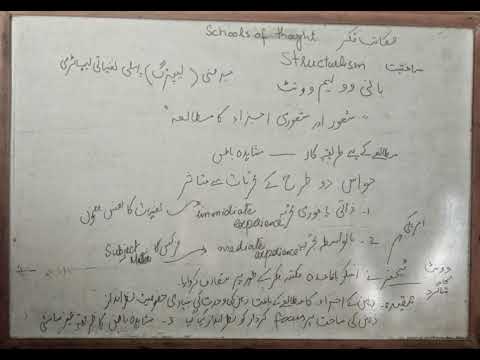 Schools of thought مکاتب فکر
Structuralism ساختیت
جرمنی (لیپزگ) پہلی نفسیاتی لیبارٹری
بانی وولیم وونٹ
"شعور اور شعوری اجزاء کا مطالعہ"
مطالعے کے لیے طریقہ کار — مشاہدہ باطن
حواس دو طرح کے تجربات سے متاثر
1۔ ذاتی / فوری تجربہ immediate experience نفسیات کا نفس مضمون
2۔ بالواسطہ تجربہ mediate experience فزکس کا Subject Matter
امریکی
وونٹ کا شاگرد
ٹچنر نے اسکو باقاعدہ مکتبہ فکر کے طور پر متعارف کروایا۔
تنقید:۔ ذہن کے اجزاء کا مطالعہ کے باعث ذہن کی وحدت کی بنیادی خصوصیت نظر انداز
ذہن کی ساخت پر focus کردار کو نظر انداز کیا گیا 3۔ مشاہدہ باطن کا طریقہ غیر سائنسی